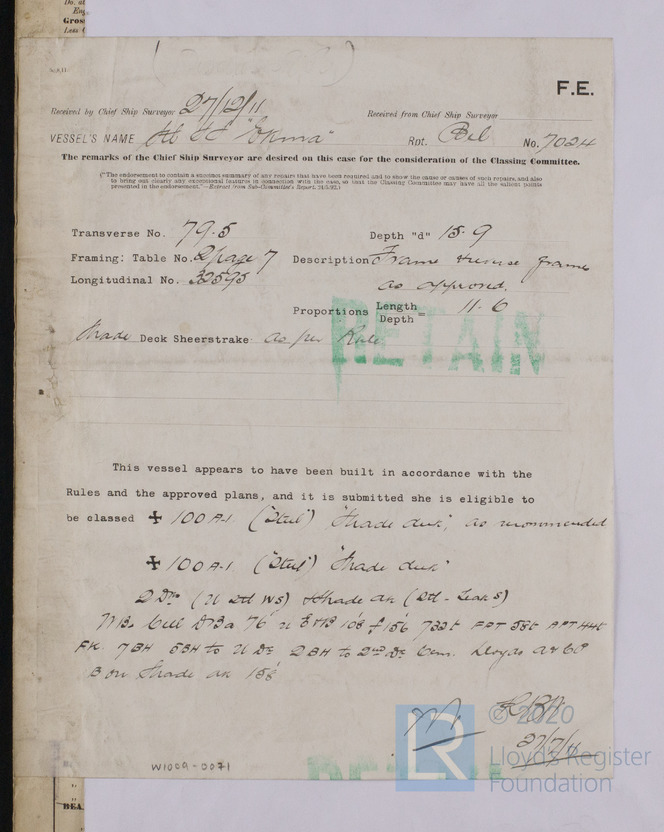 F.E.
Received by Chief Ship Surveyor 27/12/11 Received from Chief Ship Surveyor
VESSEL'S NAME "Ekma" Rpt. Bel No. 7024
The remarks of the Chief Ship Surveyor are desired on this case for the consideration of the Classing Committee.
("The endorsement to contain a succinct summary of any repairs that have been required and to show the cause or causes of such repairs, and also
to bring out clearly any exceptional features in connection with the case, so that the Classing Committee may have all the salient points
presented in the endorsement."—Extract from Sub-Committee's Report,
Transverse No. 79.5 Depth "d" 15.9
Framing: Table No. 2 page 7 Description Frame reverse frame
Longitudinal No. 32595 as approved.
Proportions Length
Depth = 11.6
RETAIN
Shade Deck Sheerstrake as per Rule
This vessel appears to have been built in accordance with the
Rules and the approved plans, and it is submitted she is eligible to
be classed ✠ 100A.1. ("Steel") "Shade deck", as recommended
✠ 100A.1 ("Steel") "Shade deck"
2 Dks Shade dk
76' 108' 156' 732t FPT 58t APT 44t
FK. 7BH 5BH to U Dk 2BH to 2nd Dk Cem. Lloyds
B on Shade dk 158'
27/12/11
W1009-0071
© 2020
LR
Lloyd's Register
Foundation